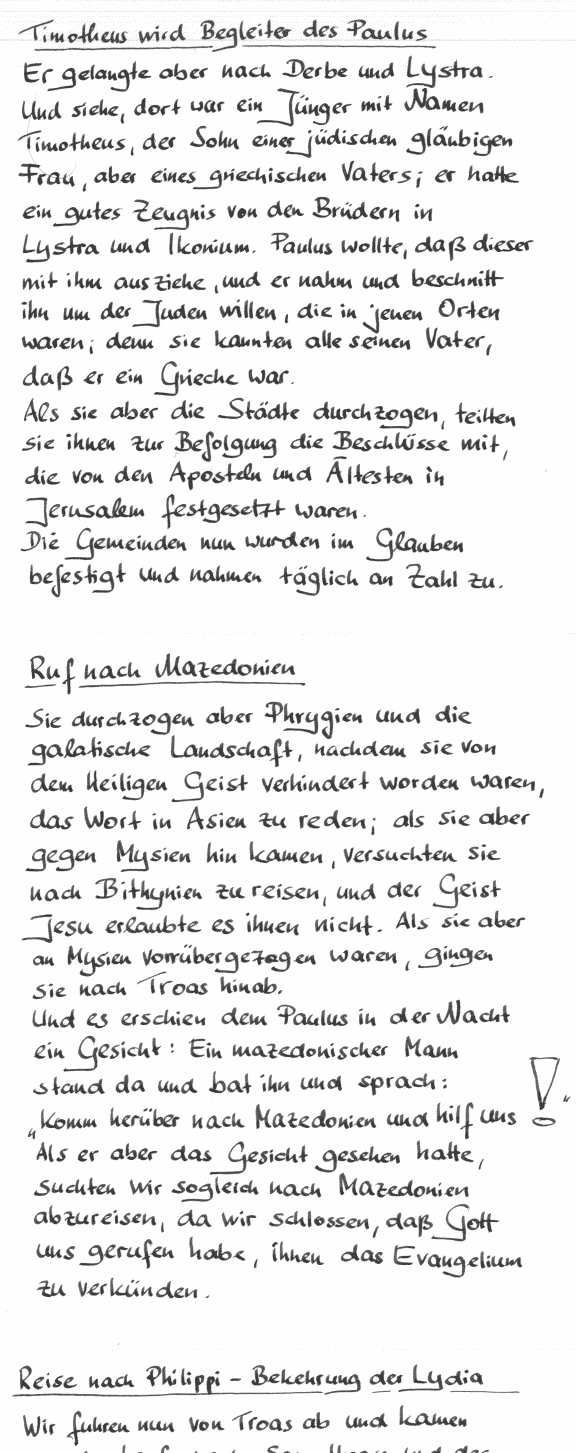 Timotheus wird Begleiter des Paulus
Er gelangte aber nach Derbe und Lystra.
Und siehe, dort war ein Jünger mit Namen
Timotheus, der Sohn einer jüdischen gläubigen
Frau, aber eines griechischen Vaters; er hatte
ein gutes Zeugnis von den Brüdern in
Lystra und Ikonium. Paulus wollte, daß dieser
mit ihm ausziehe, und er nahm und beschnitt
ihn um der Juden willen, die in jenen Orten
waren; denn sie kannten alle seinen Vater,
daß er ein Grieche war.
Als sie aber die Städte durchzogen, teilten
sie ihnen zur Befolgung die Beschlüsse mit,
die von den Aposteln und Ältesten in
Jerusalem festgesetzt waren.
Die Gemeinden nun wurden im Glauben
befestigt und nahmen täglich an Zahl zu.
Ruf nach Mazedonien
Sie durchzogen aber Phrygien und die
galatische Landschaft, nachdem sie von
dem Heiligen Geist verhindert worden waren,
das Wort in Asien zu reden; als sie aber
gegen Mysien hin kamen, versuchten sie
nach Bithynien zu reisen, und der Geist
Jesu erlaubte es ihnen nicht. Als sie aber
an Mysien vorrübergezogen waren, gingen
sie nach Troas hinab.
Und es erschien dem Paulus in der Nacht
ein Gesicht: Ein mazedonischer Mann
stand da und bat ihn und sprach:
„Komm herüber nach Mazedonien und hilf uns!"
Als er aber das Gesicht gesehen hatte,
suchten wir sogleich nach Mazedonien
abzureisen, da wir schlossen, daß Gott
uns gerufen habe, ihnen das Evangelium
zu verkünden.
Reise nach Philippi - Bekehrung der Lydia
Wir fuhren nun von Troas ab und kamen